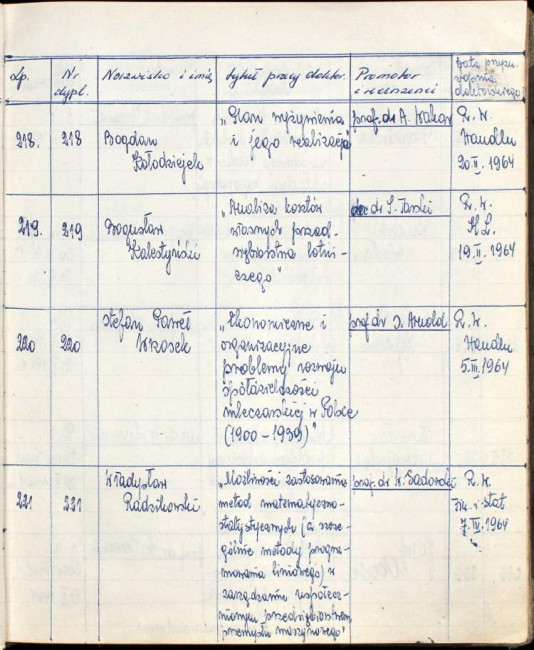 Lp.
Nr
dypl.
Nazwisko i imię
tytuł pracy doktor.
Promotor
i recenzenci
Data przyzn.
doktorskiego
218.
218
Bogdan
Kołodziejek
„Plan wyżywienia
i jego realizacja"
prof. dr A. Wakar
R. W.
Handlu
20 II. 1964
219
219
Bogusław
Kalestyński
„Analiza kosztów
własnych przed-
siębiorstwa lotni-
czego"
doc dr S. Tarski
R. W.
19. II. 1964
220
220
Stefan Paweł
Wrzosek
„Ekonomiczne i
organizacyjne
problemy rozwoju
spółdzielczości
mleczarskiej w Polsce
(1900 - 1939)"
prof dr S. Arnold
R. W.
Handlu
5. III. 1964
221
221
Władysław
Radzikowski
„Możliwości zastosowania
metod matematyczno-
statystycznych (a szcze-
gólnie metody progra-
mowania liniowego) w
zarządzaniu współczes-
nym przedsiębiorstwem
przemysłu maszynowego"
prof. dr W. Sadowski
R. W.
Fin. i Stat
1964